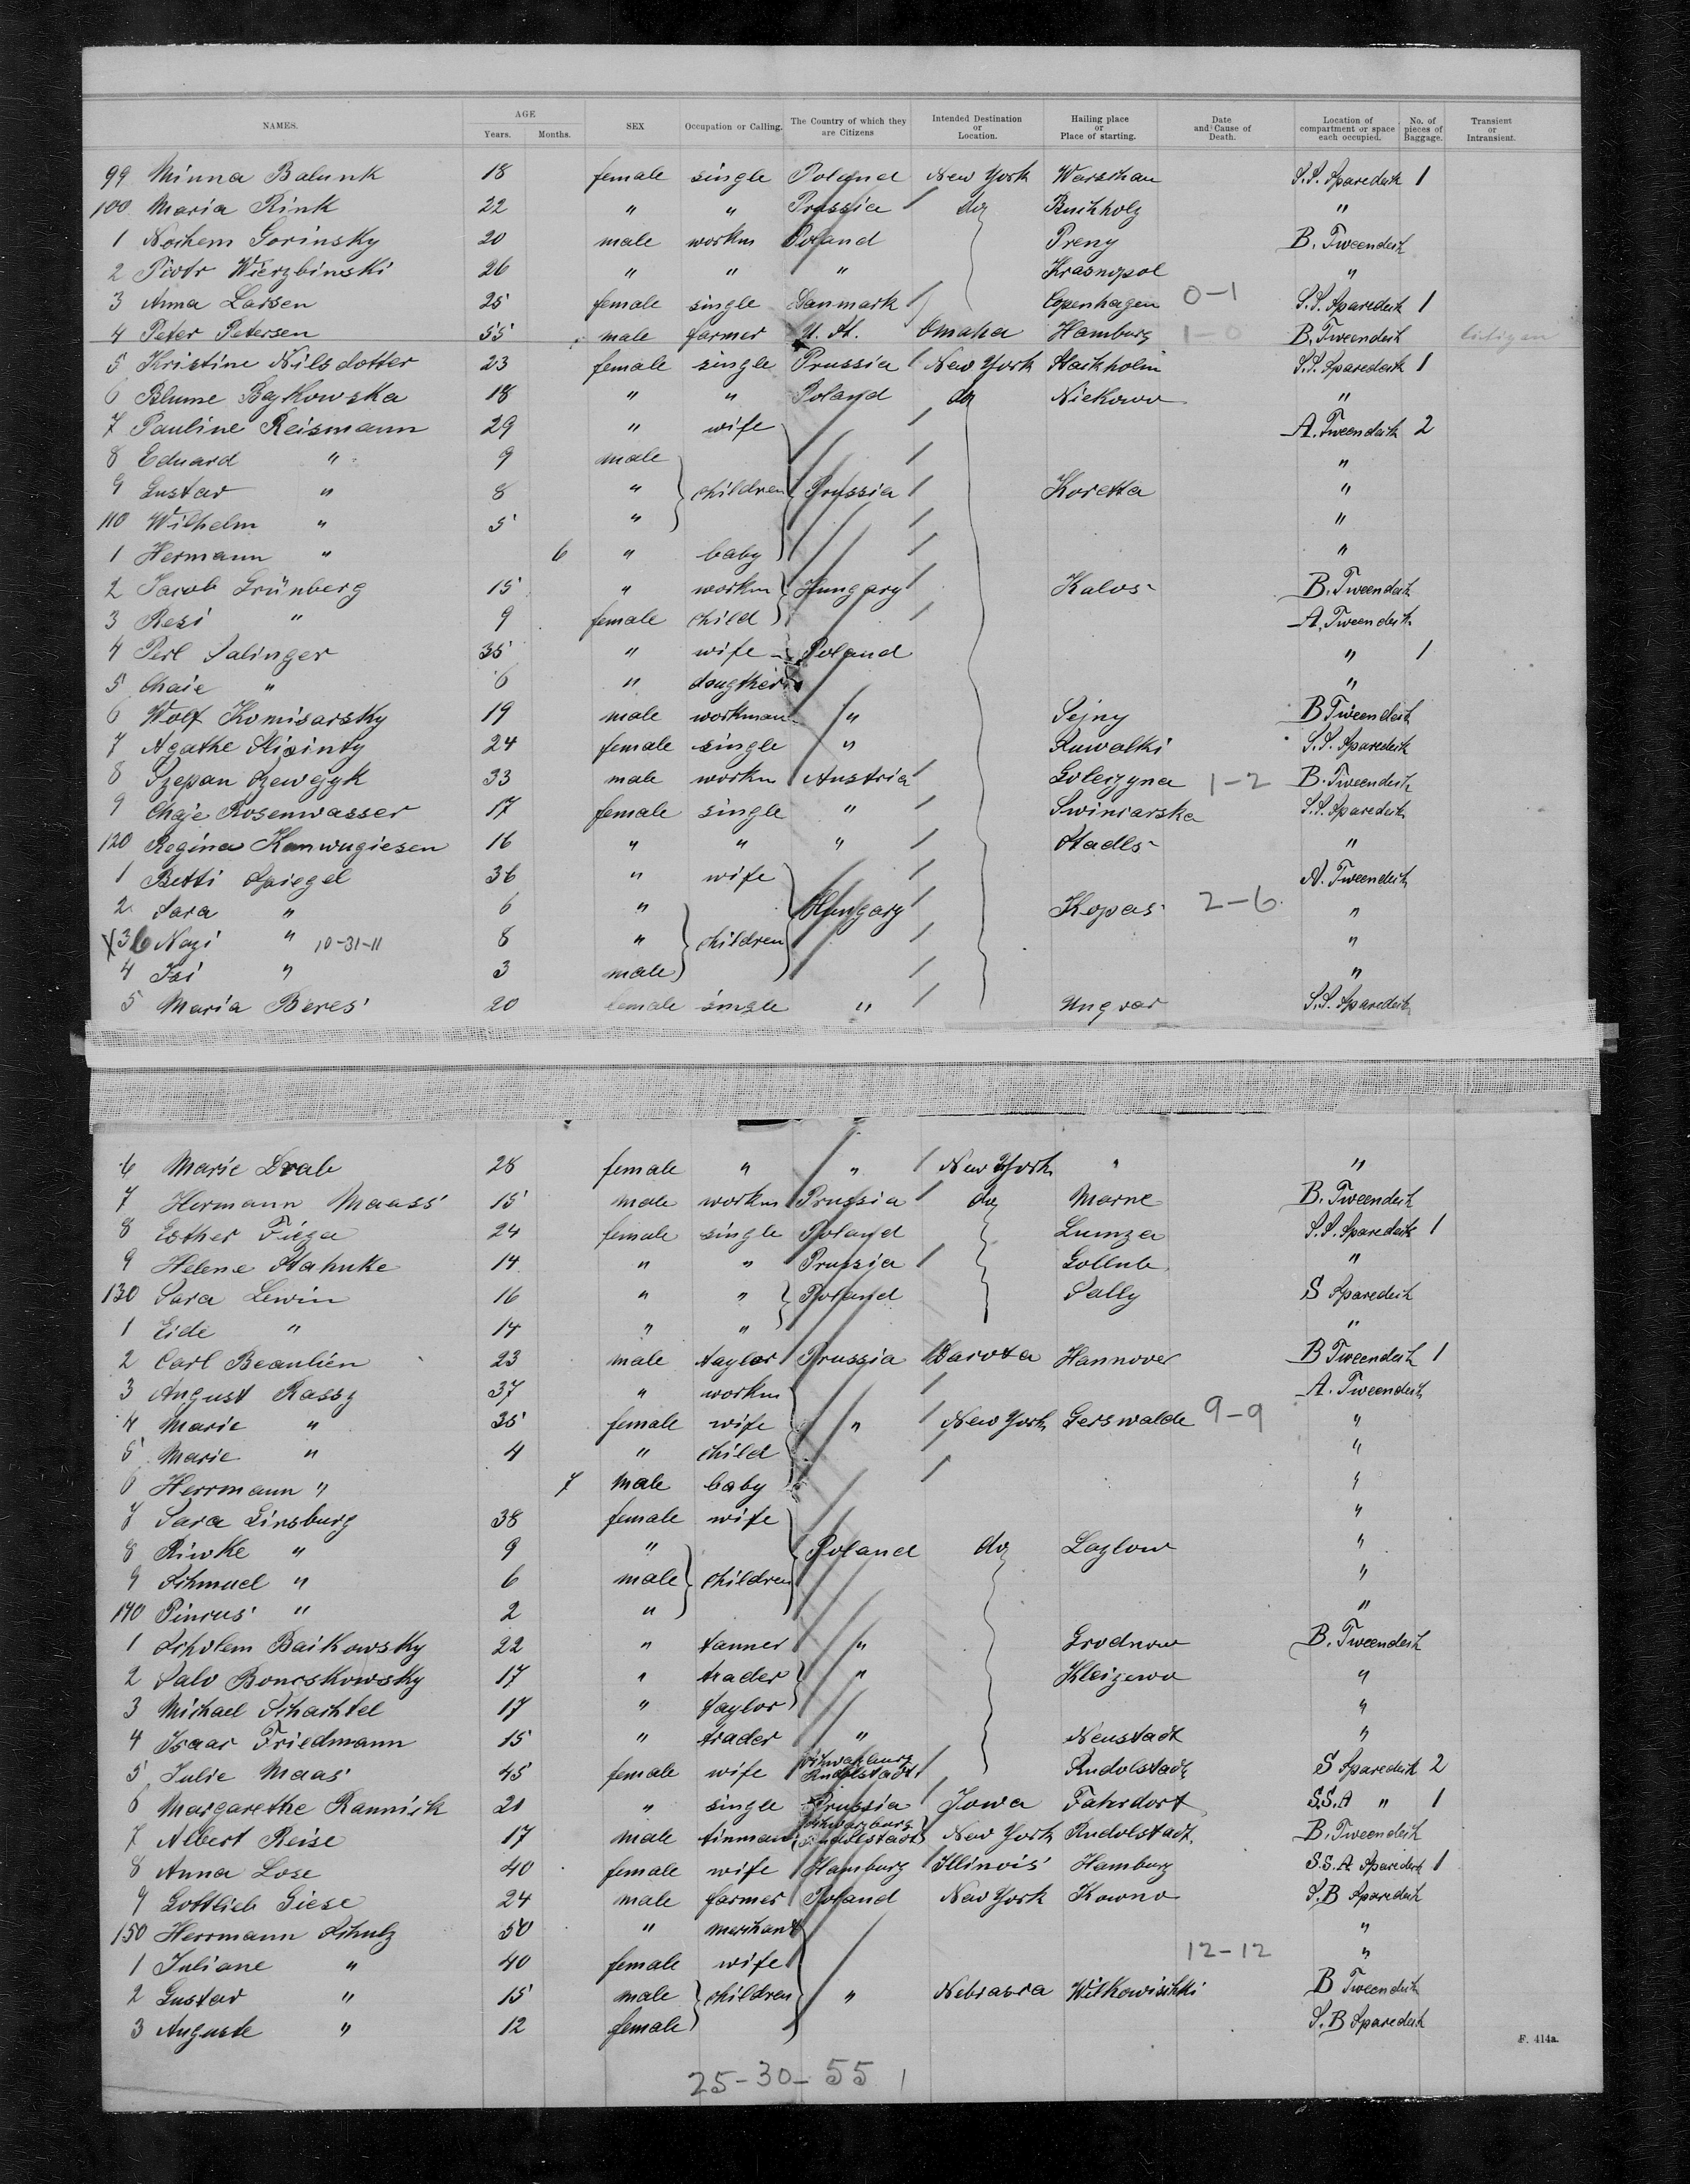 NAMES. AGE Years. Months. SEX Occupation or Calling. The Country of which they are Citizens Intended Destination or Location. Hailing place or Place of starting. Date and Cause of Death. Location of compartment or space each occupied. No. of pieces of Baggage. Transient or Intransient.
99 Minna Balunk 18 female single Poland New York Warschau S.S. Sparedeck 1
100 Maria Rink 22 " " Prussia do Buchholz "
1 Nochem Gorinsky 20 male workm Poland Preny B. Tweendeck
2 Piotr Wierzbinski 26 " " " Krasnopol "
3 Anna Larsen 25 female single Danmark Copenhagen 0-1 S.S. Sparedeck 1
4 Peter Petersen 55 male farmer U. St. Omaha Hamburg 1-0 B. Tweendeck
5 Kristine Nilsdotter 23 female single Prussia New York Stockholm S.S. Sparedeck 1
6 Blume Baykowska 18 " " Poland do Niekowo "
7 Pauline Reismann 29 " wife A. Tweendeck 2
8 Eduard " 9 male "
9 Gustav " 8 " children Prussia Koretta "
110 Wilhelm " 5 " "
1 Hermann " 6 " baby "
2 Jacob Grünberg 15 " workm Hungary Kalos B. Tweendeck
3 Resi " 9 female child A. Tweendeck
4 Perl Salinger 35 " wife Poland " 1
5 Chaie " 6 " dougther "
6 Wolf Komisarsky 19 male workman " Sejny B Tweendeck
7 Agathe 24 female single " Suwalki S.S. Sparedeck
8 Szepan Szewczyk 33 male workm Austria Goleczyna 1-2 B. Tweendeck
9 Chaje Rosenwasser 17 female single " Swiniarska S.S. Sparedeck
120 Regina Kanwugiesen 16 " " " Stadls "
1 Betti Spiegel 36 " wife A. Tweendeck
2 Sara " 6 " Hungary Kopas 2-6 "
X36 Nazi " 10-31-11 8 " children "
4 Isi " 3 male "
5 Maria Beres 20 female single " Ungvar S.S. Sparedeck
6 Marie Drab 28 female " " New York " "
7 Hermann Maass 15 male workm Prussia do Marne B. Tweendeck
8 Esther Fiega 24 female single Poland Lumza S.S. Sparedeck 1
9 Helene Stahnke 14 " " Prussia Gollub "
130 Sara Lewin 16 " " Poland Sally S Sparedeck
1 Eide " 14 " " "
2 Carl Beaulien 23 male taylor Prussia Dacota Hannover B Tweendeck 1
3 August Rassz 37 " workm A. Tweendeck
4 Marie " 35 female wife " New York Gerswalde 9-9 "
5 Marie " 4 " child "
6 Herrmann " 7 male baby "
7 Sara Ginsburg 38 female wife "
8 Riwke " 9 " Poland do Lazlow "
9 Schmuel " 6 male children "
140 Pincus " 2 " "
1 Scholem Baikowsky 22 " tanner " Grodnow B. Tweendeck
2 Salo Boncskowsky 17 " trader " Kleizewo "
3 Michael Schachtel 17 " taylor "
4 Isaac Friedmann 15 " trader " Neustadt "
5 Julie Maas 45 female wife Schwarzburg Rudolstadt Rudolstadt S Sparedeck 2
6 Margarethe Rannick 21 " single Prussia Jowa Fahrdorf S.S.A " 1
7 Albert Reise 17 male tinman Schwarzburg Rudolstadt New York Rudolstadt B. Tweendeck
8 Anna Lose 40 female wife Hamburg Illinois Hamburg S.S.A Sparedeck 1
9 Gottlieb Giese 24 male farmer Poland New York Kowno S.B Sparedeck
150 Herrmann Schulz 50 " merchant "
1 Juliane " 40 female wife 12-12 "
2 Gustav " 15 male children " Nebrasca Wilkowischki B Tweendeck
3 Auguste " 12 female S.B Sparedeck
F. 414a.
25-30-55